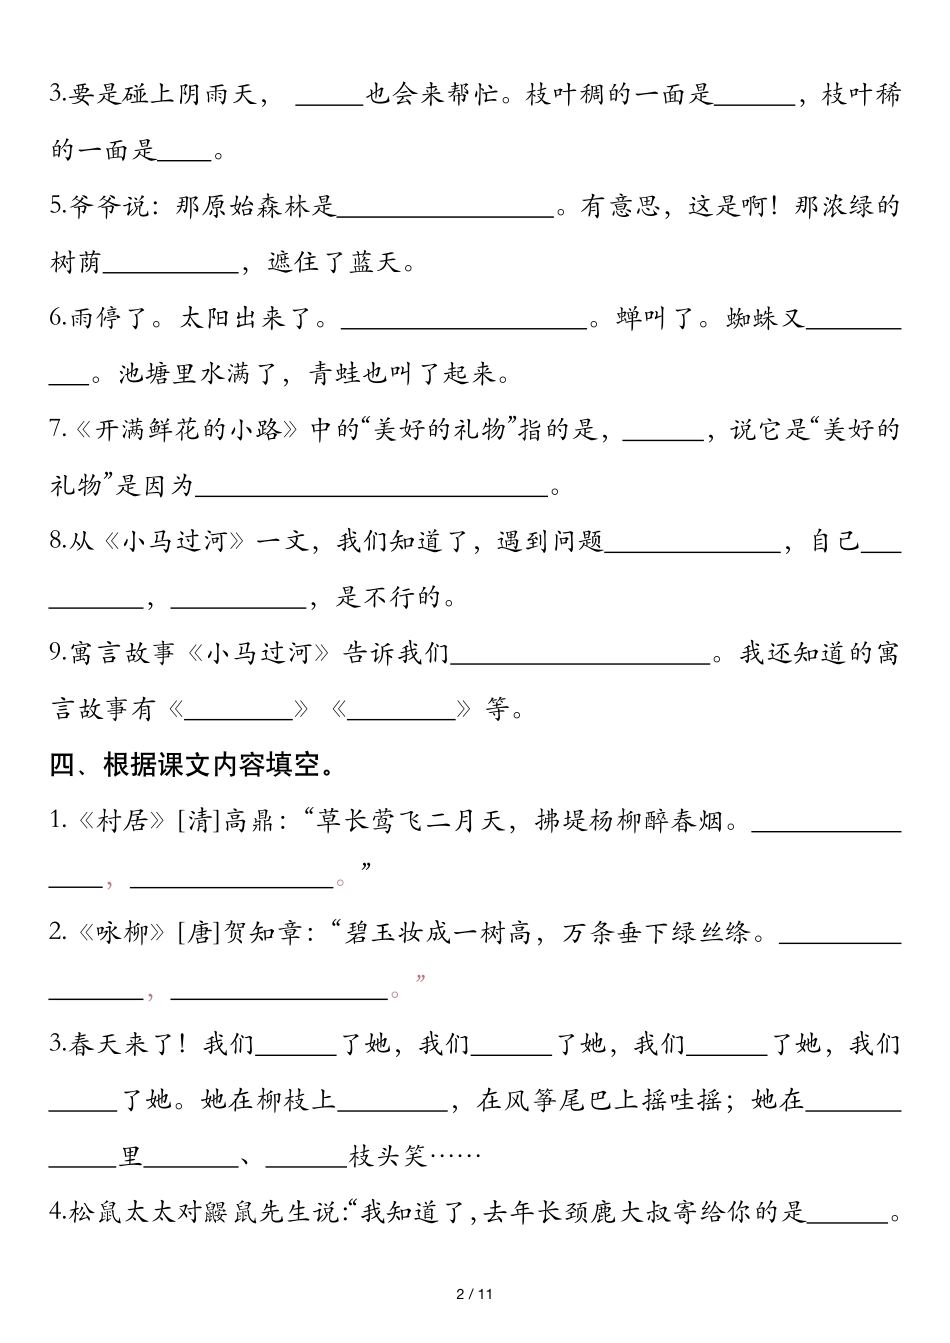 3.要是碰上阴雨天， _____也会来帮忙。枝叶稠的一面是______，枝叶稀
的一面是____。
5.爷爷说：那原始森林是________________。有意思，这是啊！那浓绿的
树荫__________，遮住了蓝天。
6.雨停了。太阳出来了。__________________。蝉叫了。蜘蛛又_______
___。池塘里水满了，青蛙也叫了起来。
7.《开满鲜花的小路》中的“美好的礼物”指的是，______，说它是“美好的
礼物”是因为__________________________。
8.从《小马过河》一文，我们知道了，遇到问题_____________，自己___
_______，__________，是不行的。
9.寓言故事《小马过河》告诉我们___________________。我还知道的寓
言故事有《________》《________》等。
四、根据课文内容填空。
1.《村居》[清]高鼎：“草长莺飞二月天，拂堤杨柳醉春烟。___________
____，_______________。”
2.《咏柳》[唐]贺知章：“碧玉妆成一树高，万条垂下绿丝绦。_________
_______，________________。”
3.春天来了！我们______了她，我们______了她，我们______了她，我们
_____了她。她在柳枝上________，在风筝尾巴上摇哇摇；她在_______
_____里_______、______枝头笑……
4.松鼠太太对鼹鼠先生说：“我知道了，去年长颈鹿大叔寄给你的是______。
2 / 11